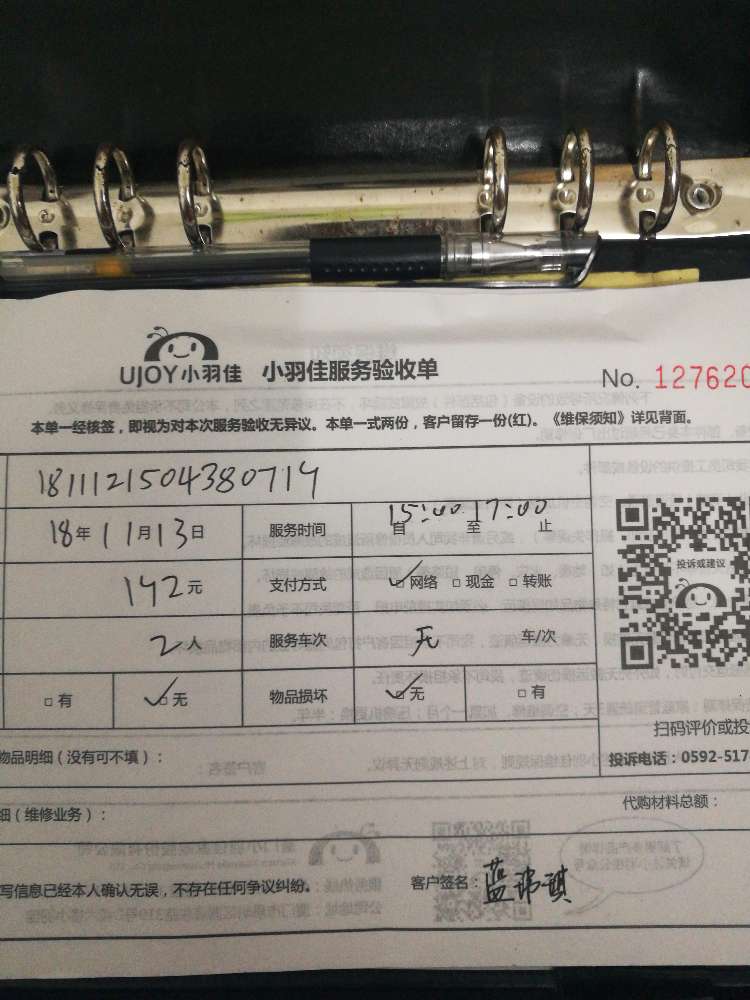 UJOY小羽佳 小羽佳服务验收单
No. 127620
本单一经核签，即视为对本次服务验收无异议。本单一式两份，客户留存一份(红)。《维保须知》详见背面。
1811121504380714
18年11月13日 服务时间 自15:00至17:00止
142元 支付方式 ✓网络 □现金 □转账
2人 服务车次 无 车/次
□有 ✓无 物品损坏 ✓无 □有
投诉或建议
扫码评价或投
物品明细（没有可不填）：
投诉电话：0592-517
细（维修业务）：
代购材料总额：
写信息已经本人确认无误，不存在任何争议纠纷。
客户签名：蓝玮琪